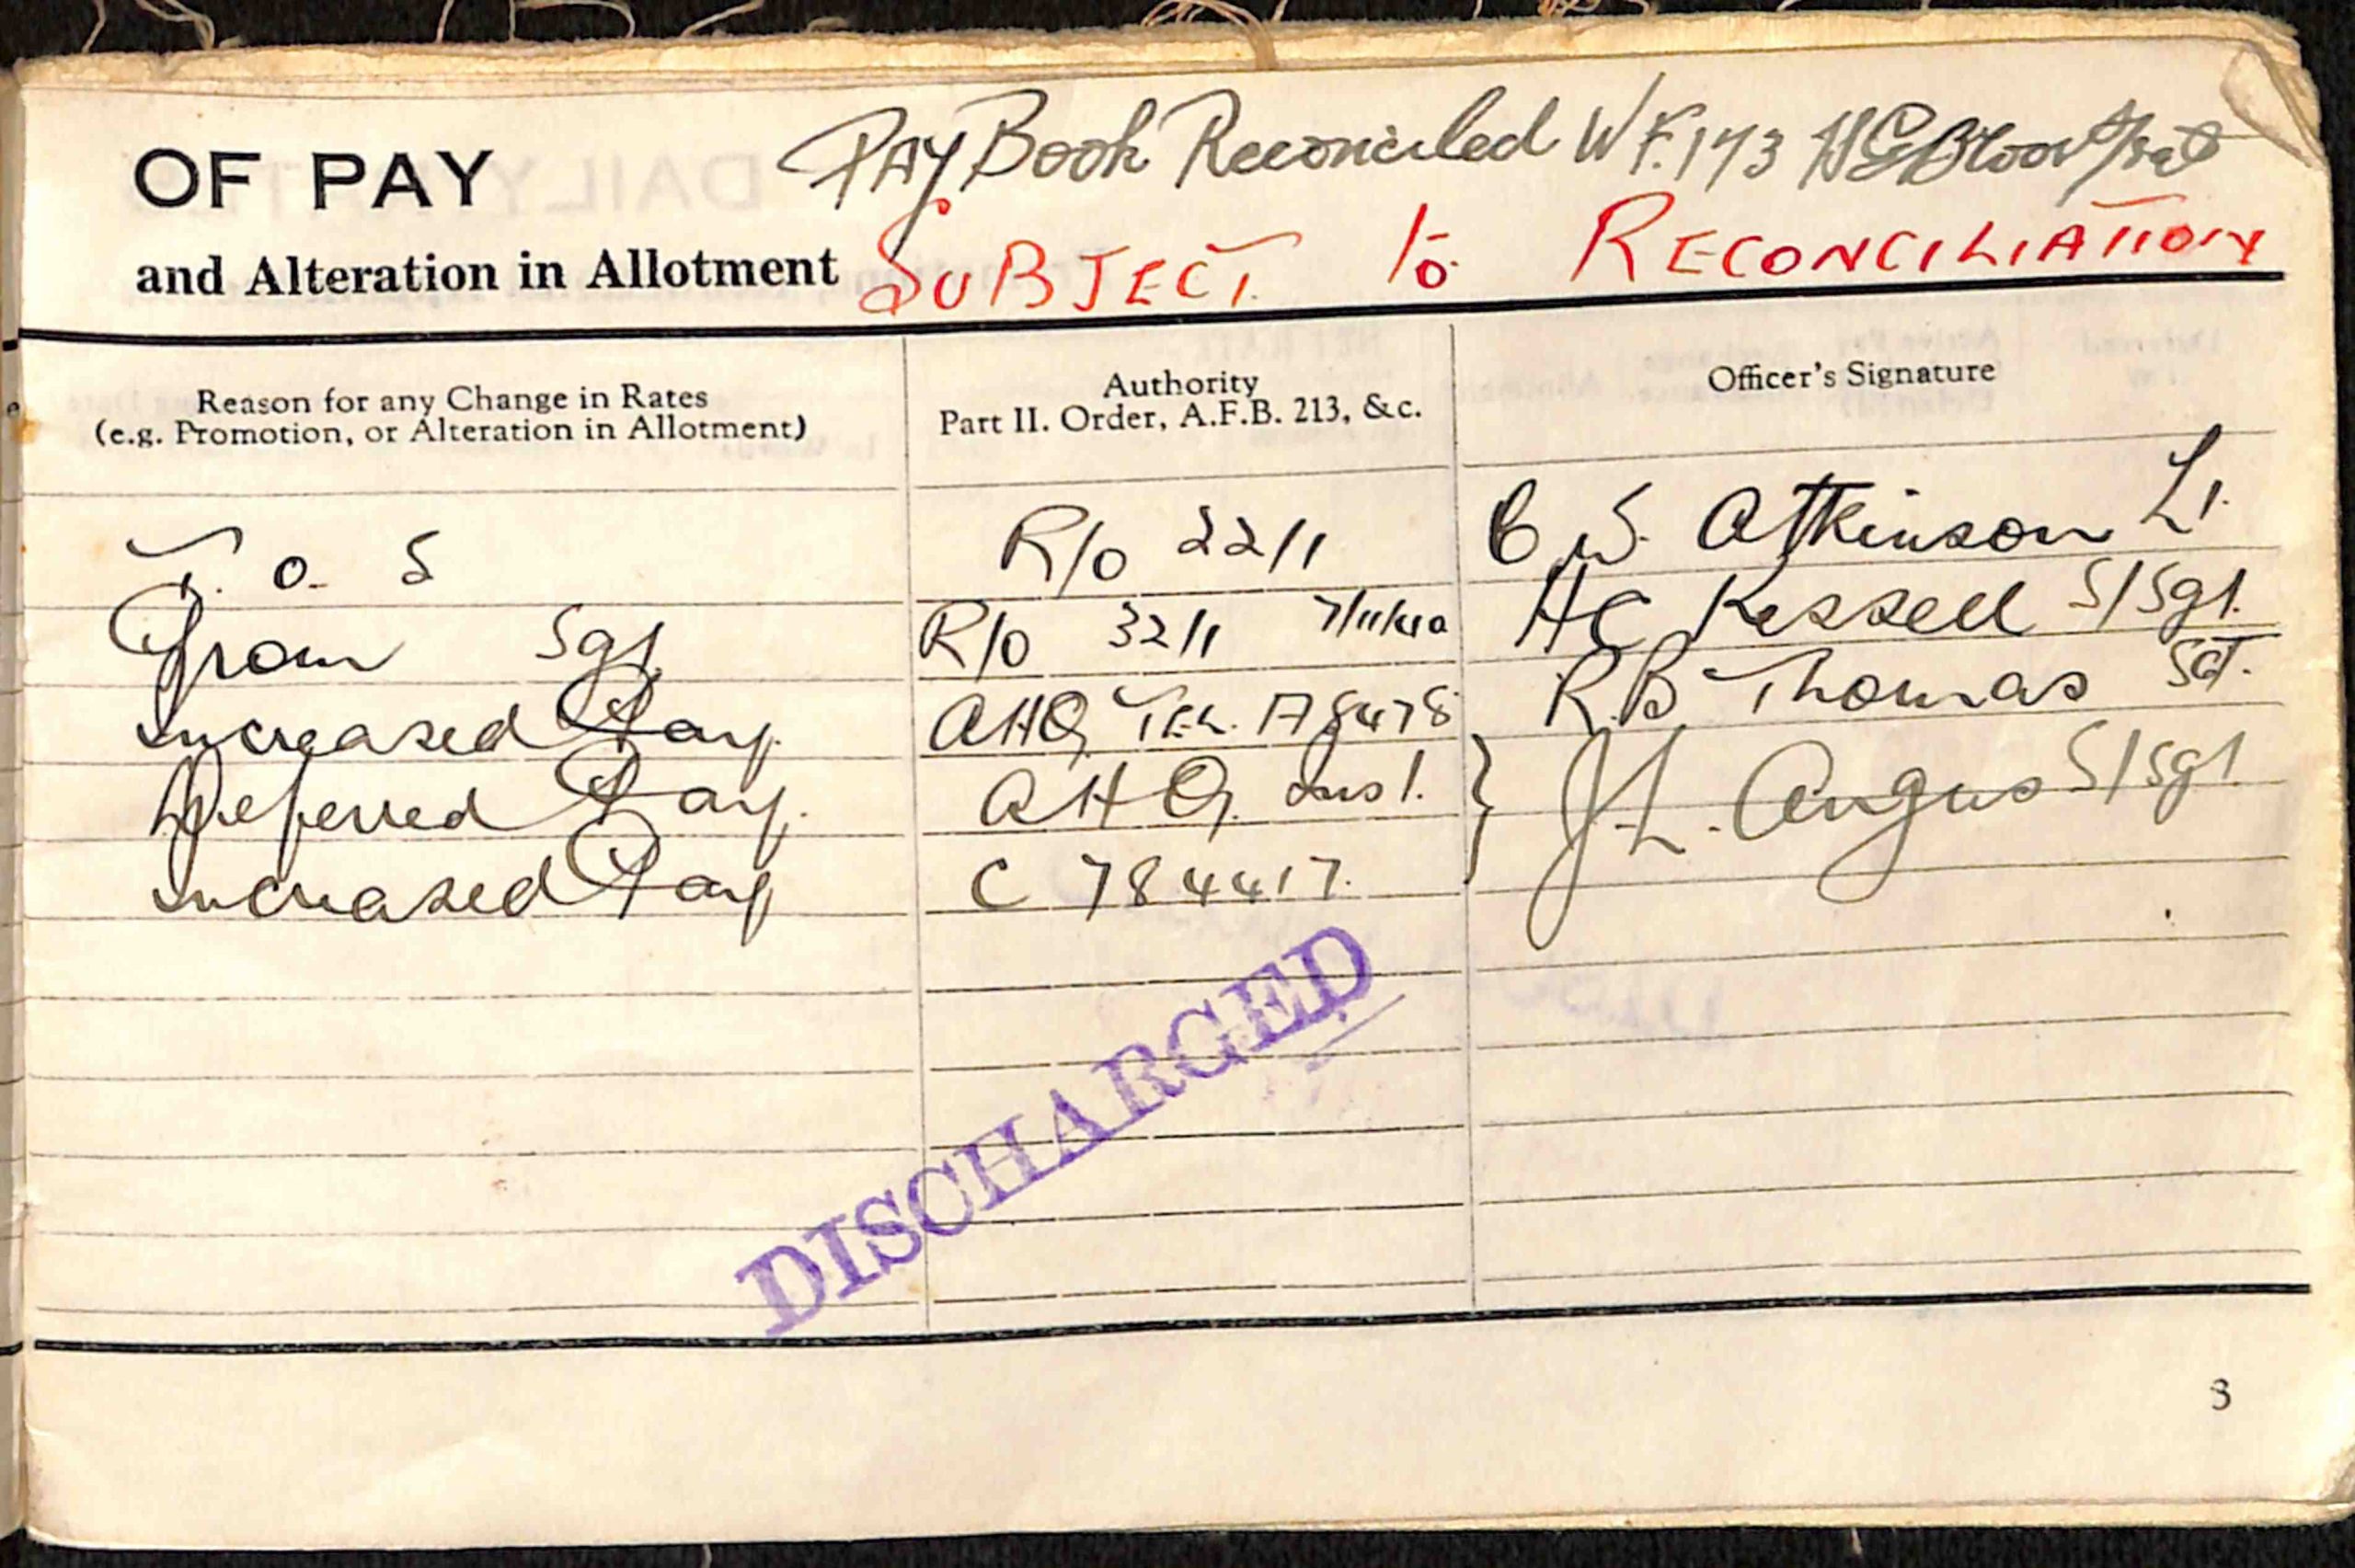 OF PAY
Pay Book Reconciled W.F. 173
and Alteration in Allotment
SUBJECT To RECONCILIATION
Reason for any Change in Rates
(e.g. Promotion, or Alteration in Allotment)
Authority
Part II. Order, A.F.B. 213, &c.
Officer's Signature
T. o. S R/o 22/1 C S. Atkinson Lt.
Prom Sgt R/o 32/1 HC Kessell S/Sgt.
Increased Pay. AHQ Tel. A8478 R.B Thomas Sgt.
Deferred Pay. AHQ. Inst. } J L. Angus S/Sgt
Increased Pay C 784417.
DISCHARGED
3